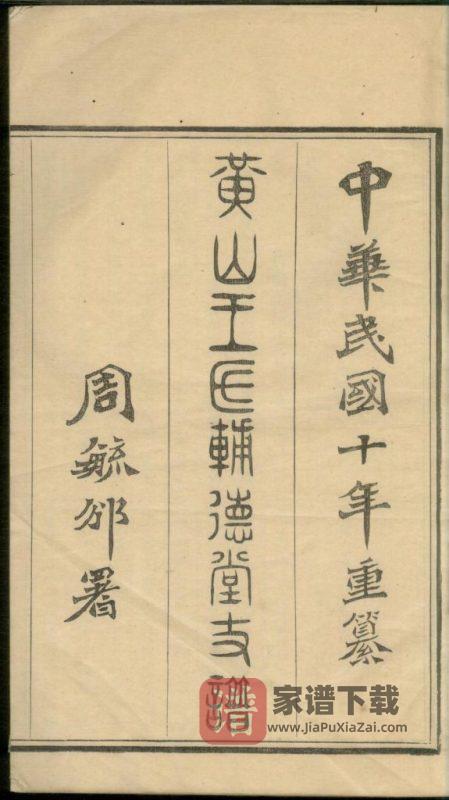 中華民國十年重纂
黃山王氏輔德堂支譜
周毓邠署
譜
家谱下载
www.JiaPuXiaZai.com